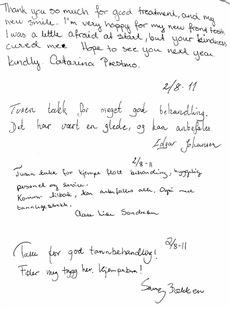 Thank you so much for good treatment, and my
new smile. I'm very happy for my new front teeth
I was a little afraid at start, but your kindness
cured me. Hope to see you next year
kindly. Catarina
2/8-11
Tusen takk for meget god behandling.
Det har vært en glede, og kan anbefales
Edgar Johansen
2/8-11
Tusen takk for kjempe flott behandling, hyggelig
personal og service.
Kommer tilbake, kan anbefales alle. Også mot
tannlegeskrekk.
Aase Lise
2/8-11
Takk for god tannbehandling!
Føler meg trygg her. Kjempebra!